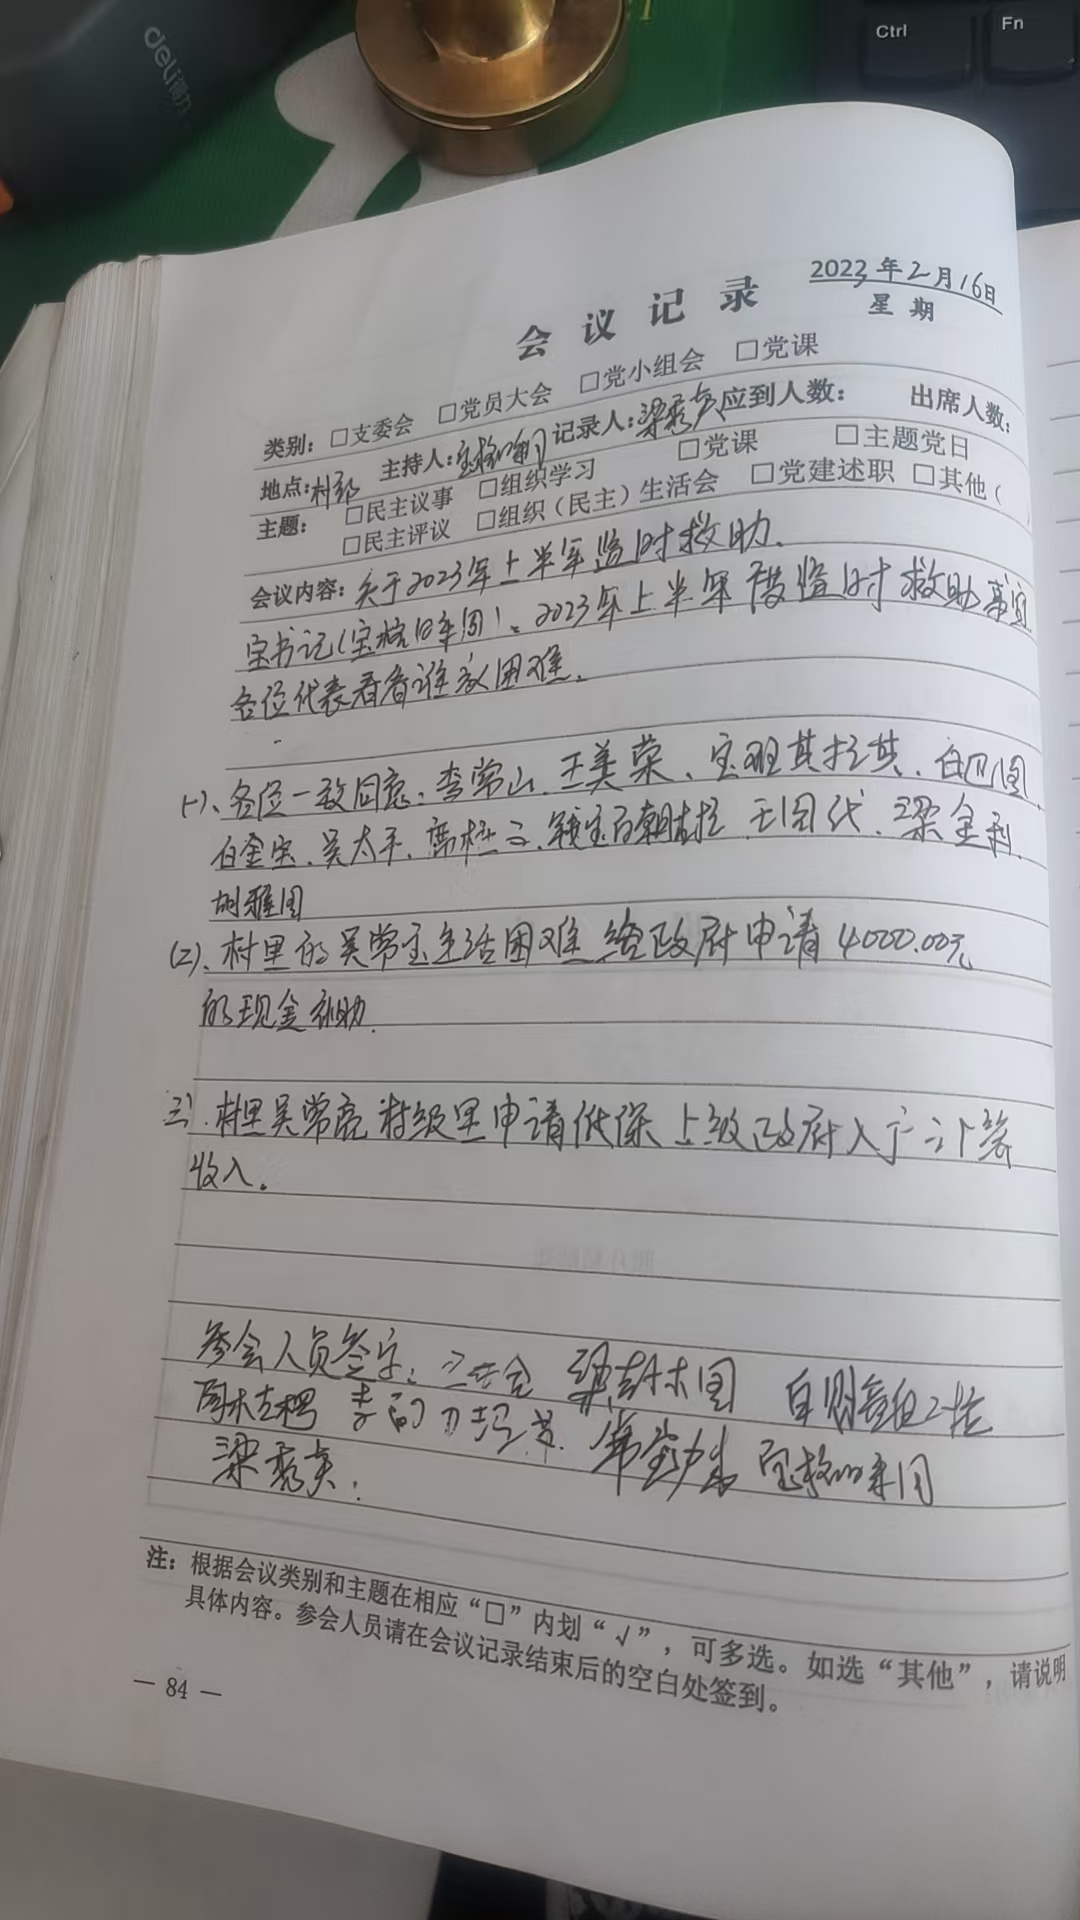 deli得力
Ctrl
Fn
2023年2月16日
会议记录
星期
类别：□支委会 □党员大会 □党小组会 □党课
地点：村部 主持人：宝格 记录人：梁秀英 应到人数： 出席人数：
主题： □民主议事 □组织学习 □党课 □主题党日
□民主评议 □组织（民主）生活会 □党建述职 □其他（
会议内容：关于2023年上半年临时救助.
宝书记（宝格日朱图）、2023年上半年 临时救助事宜
各位代表看看谁家困难.
(一)、各位一致同意：李常山、王美荣、宝班其扎其、白乃图
白金宝、吴太平、席桂云、钱宝 朝古拉 王图代、梁金利、
胡雅图
(2)、村里的吴常宝生活困难给政府申请4000.00元
的现金补助.
三、村里吴常虎 村级里申请低保上级政府入户 算
收入.
参会人员签字：
梁秀英. 宝格日朱图
注：根据会议类别和主题在相应“□”内划“√”，可多选。如选“其他”，请说明
具体内容。参会人员请在会议记录结束后的空白处签到。
— 84 —